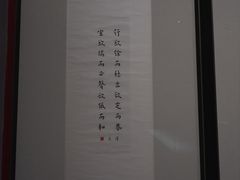 行欲徐而穩立欲定而恭
坐欲端而正聲欲低而和